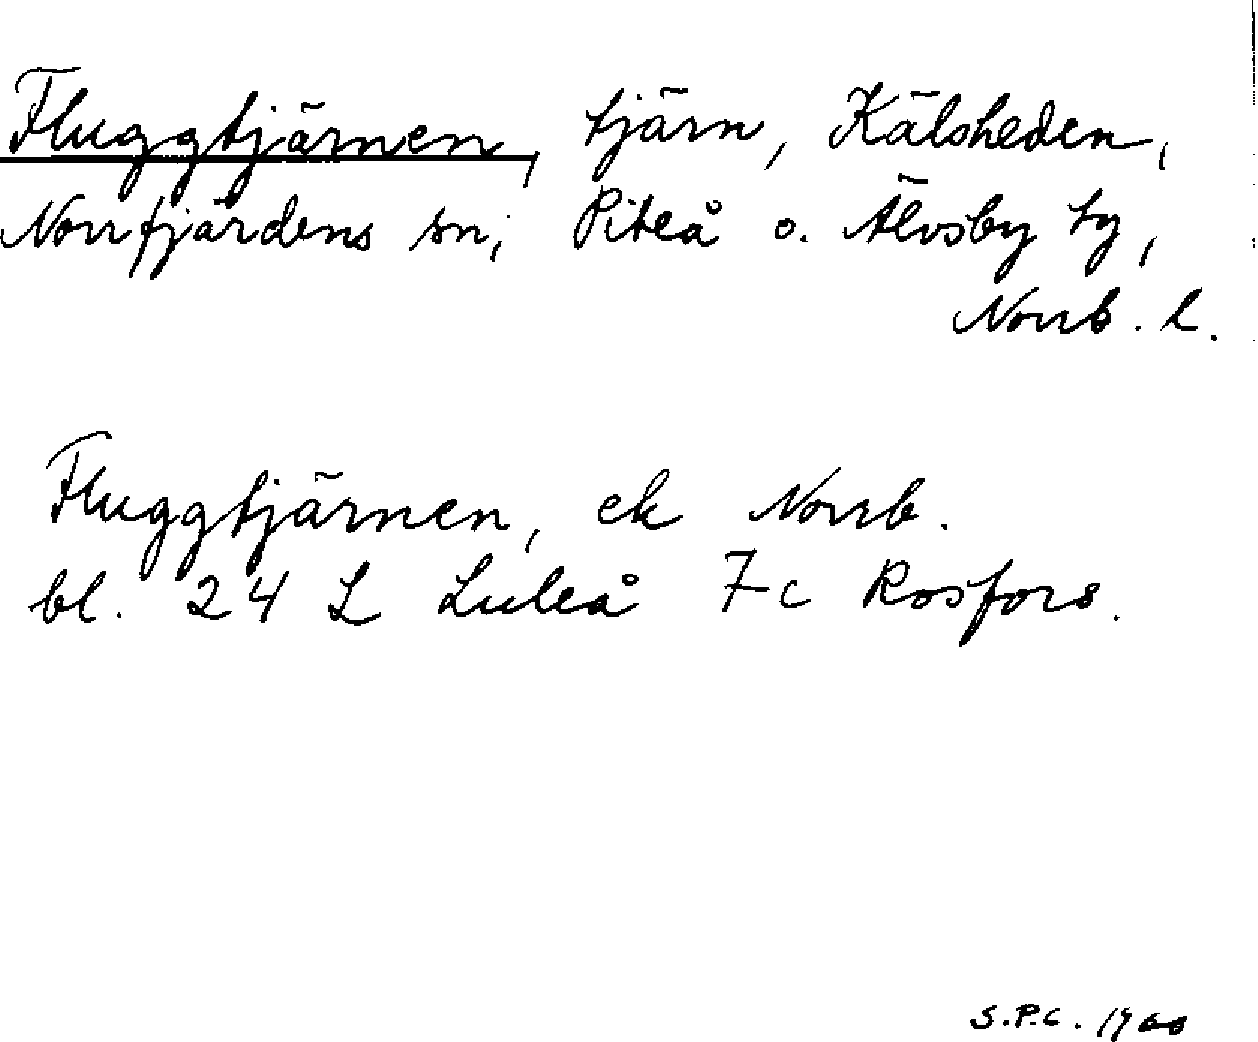 Fluggtjärnen, tjärn, Kälsheden,
Norrfjärdens sn, Piteå o. Älvsby tg,
Norrb. l.
Fluggtjärnen, ek Norrb.
bl. 24 L Luleå 7c Rosfors.
S.P.C. 1966